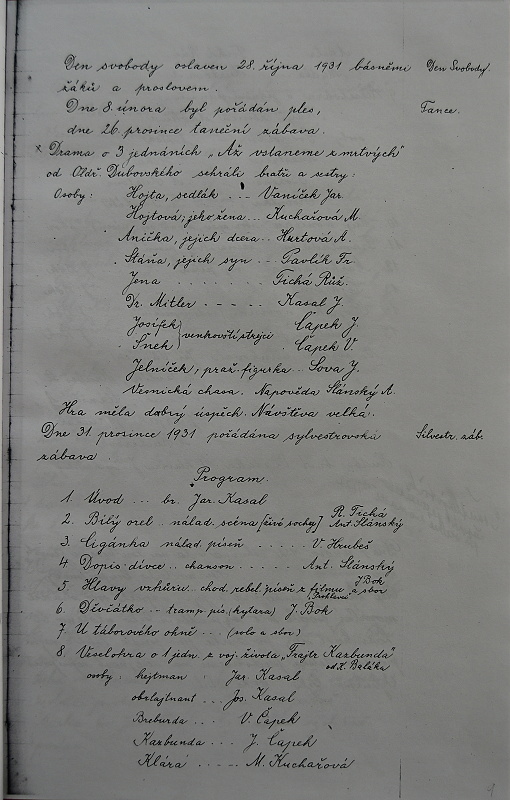 Den svobody oslaven 28. října 1931 básněmi Den Svobody.
žáků a proslovem.
Dne 8. února byl pořádán ples, Tance.
dne 26. prosince taneční zábava.
x Drama o 3 jednáních „Až vstaneme z mrtvých"
od Oldř. Dubovského sehráli bratři a sestry:
Osoby: Hojta, sedlák ... Vaníček Jar.
Hojtová, jeho žena... Kuchařová M.
Anička, jejich dcera.. Hurtová A.
Stáňa, jejich syn ... Pavlík Fr.
Jena ....... Tichá Růž.
Dr. Mitler ----- Kasal J.
Josífek } venkovští strejci Čapek J.
Šnek } Čapek V.
Jelníček, praž. figurka.. Sova J.
Vesnická chasa. Napověda Slánský A.
Hra měla dobrý úspěch. Návštěva velká.
Dne 31. prosince 1931 pořádána sylvestrovská Silvestr. záb.
zábava.
Program.
1. Úvod ... br. Jar. Kasal
2. Bílý orel.. nálad. scéna [živé sochy] R. Tichá Ant. Slánský
3. Cigánka nálad. píseň ..... V. Hrubeš
4 Dopis dívce.. chanson ..... Ant. Slánský
5. Hlavy vzhůru.. chod. rebel. píseň z filmu J Bok a sbor
6. Děvčátko -- tramp. pís. (kytara) J. Bok
7. U táborového ohně ... (solo a sbor)
8. Veselohra o 1 jedn. z voj. života „Frajtr Kazbunda"
od K. Baláka
osoby: hejtman . Jar. Kasal
obrlajtnant ... Jos. Kasal
Breburda ... V Čapek
Kazbunda ... J. Čapek
Klára ----- M. Kuchařová